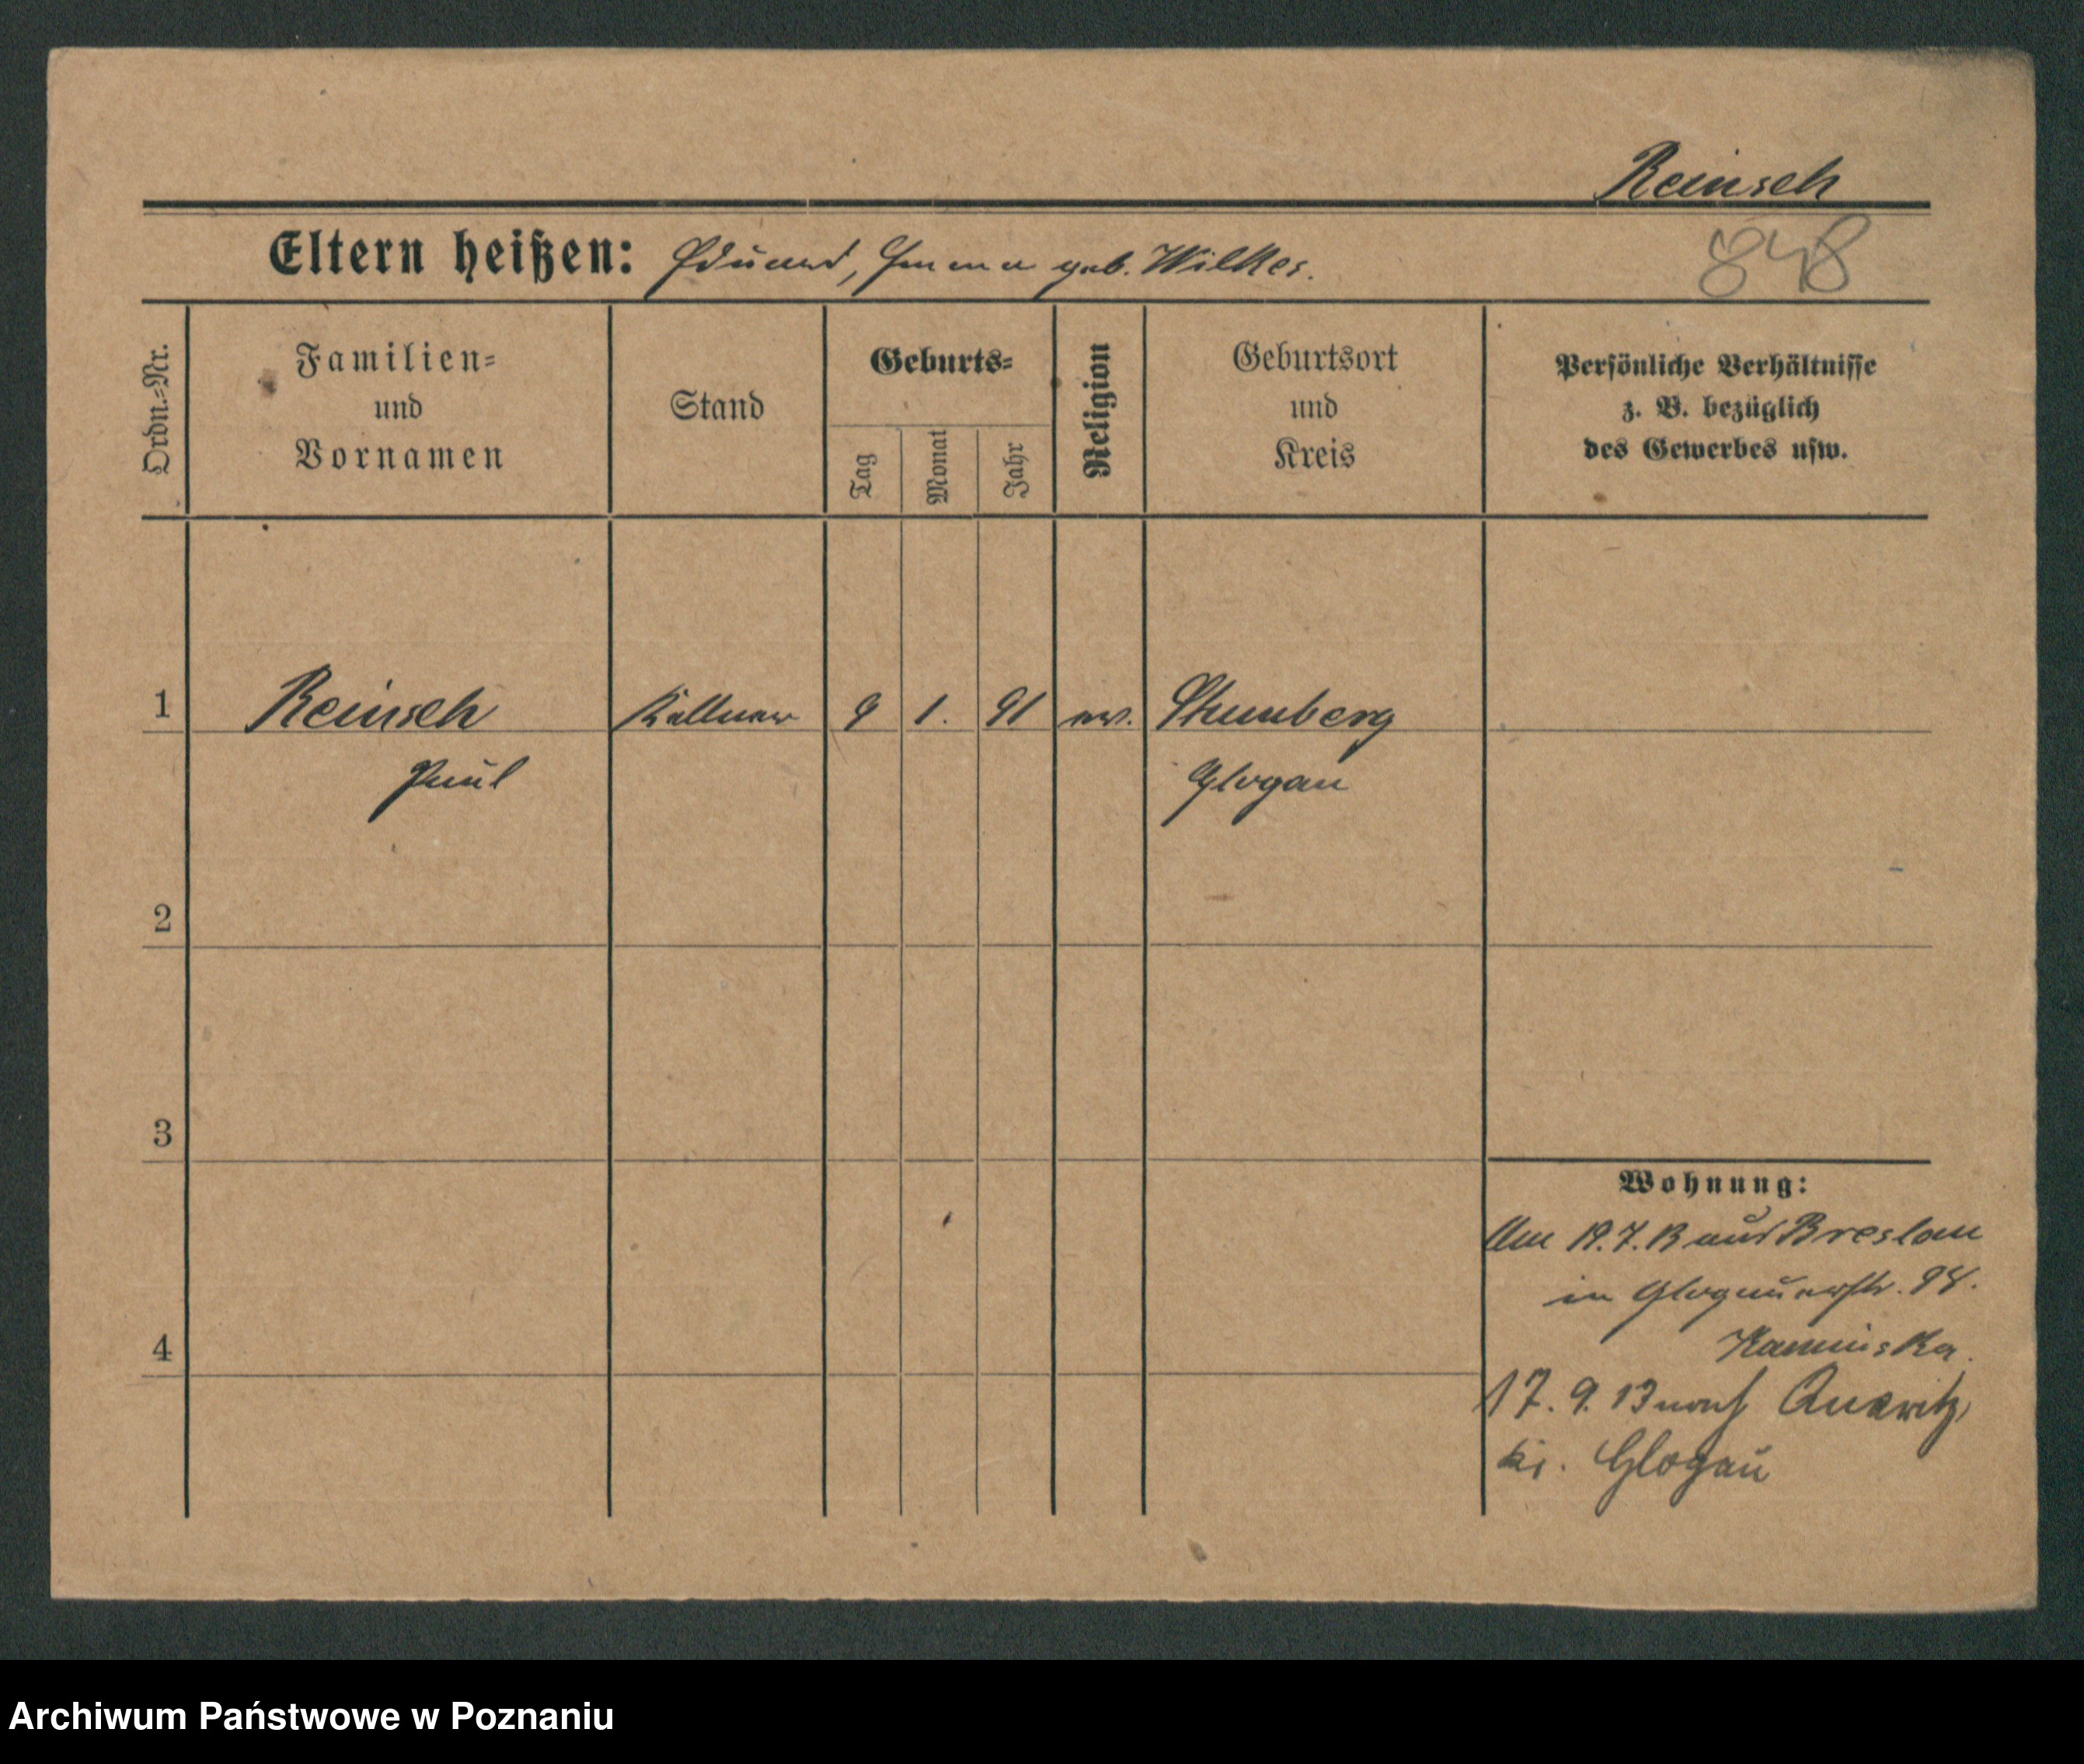 Reinsch
Eltern heißen: Eduard, Emma geb. Wilkes.
848
Ordn.=Nr.
Familien=
und
Vornamen
Stand
Geburts=
Tag
Monat
Jahr
Religion
Geburtsort
und
Kreis
Persönliche Verhältnisse
z. B. bezüglich
des Gewerbes usw.
1
Reinsch
Kellner
9
1.
91
ev.
Paul
Glogau
2
3
4
Wohnung:
Am 19.7.13 aus Breslau
in Glogauerstr. 94.
Kaminska.
17. 9. 13 nach
Kr. Glogau
Archiwum Państwowe w Poznaniu